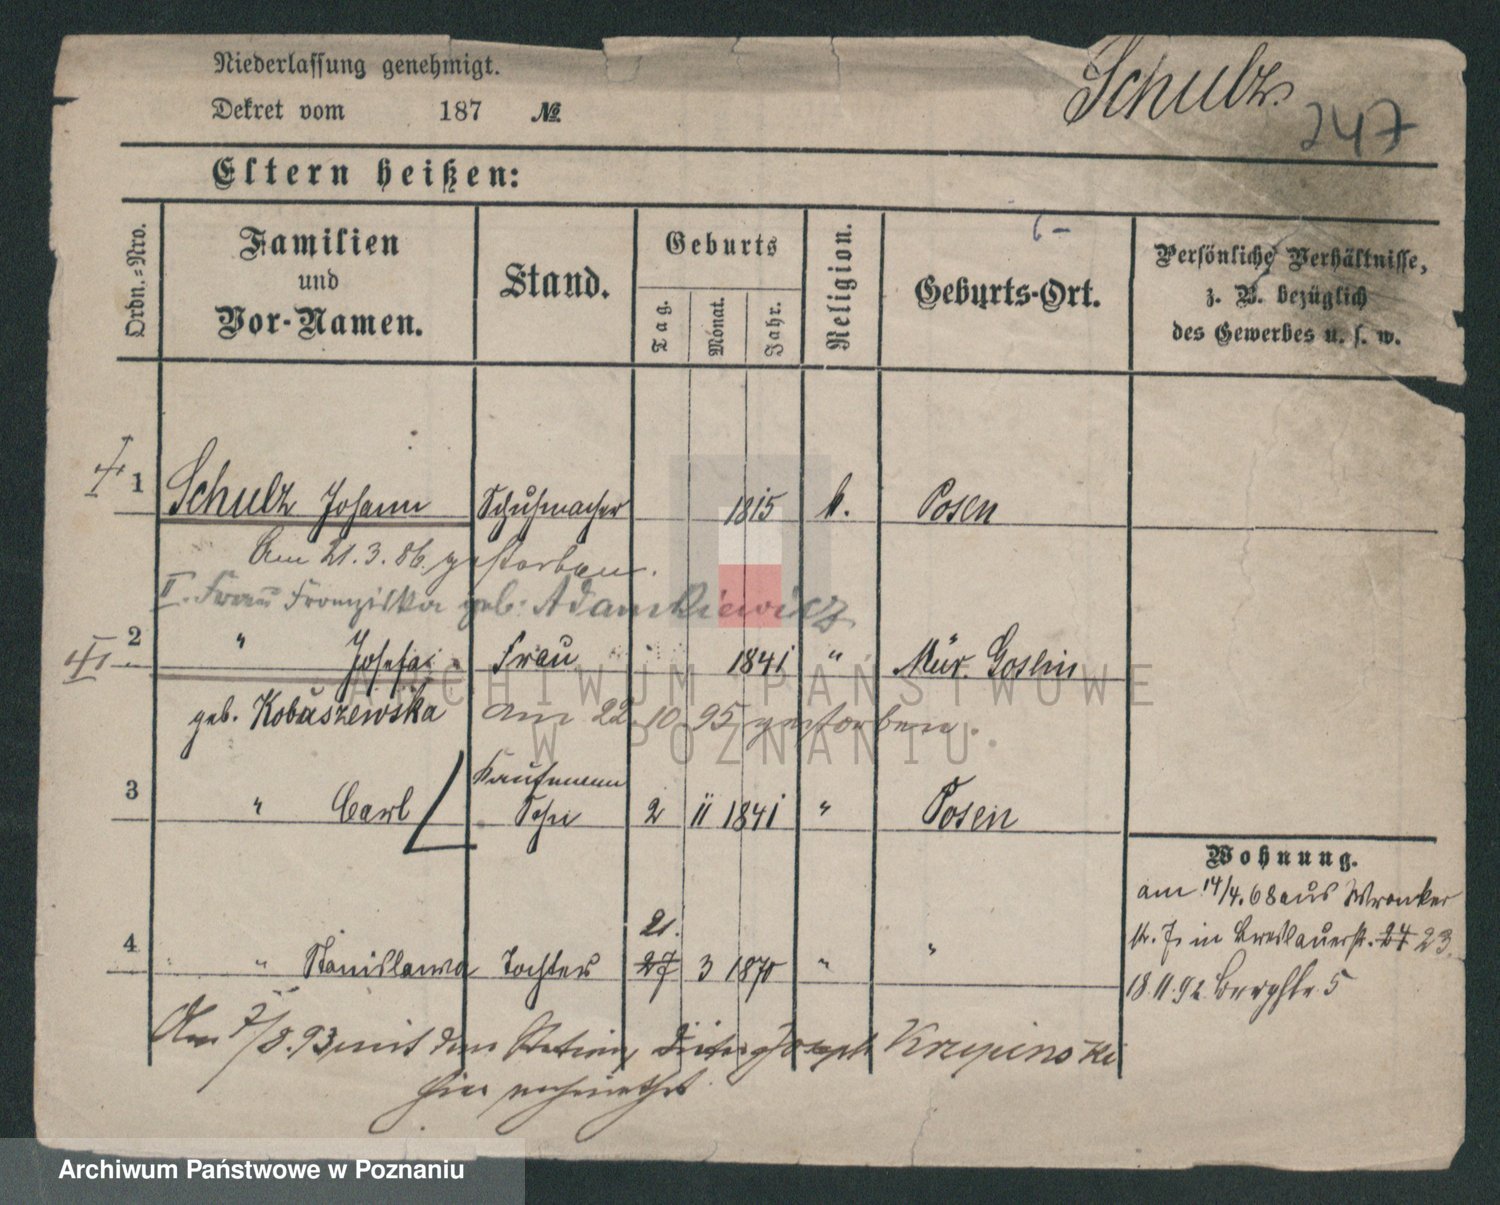 Niederlassung genehmigt.
Schulz.
247
Dekret vom 187 №
Eltern heißen:
Ordn.-Nro.
Familien
und
Vor-Namen.
Stand.
Geburts
Tag.
Monat.
Jahr.
Religion.
Geburts-Ort.
Persönliche Verhältnisse,
z. B. bezüglich
des Gewerbes u. s. w.
1 Schulz Johann Schuhmacher 1815 k. Posen
Am 21.3.86 gestorben.
II. Frau Franziska geb. Adamkiewicz
2 " Josefa Frau 1841 " Mur. Goslin
geb. Kobuszewska am 22.10.95 gestorben.
Kaufmann
3 " Carl Sohn 2 11 1841 " Posen
Wohnung.
am 14/4.68 aus Wronker
str. 7. in Breslauerstr. 24 23.
18.11.92 Bergstr. 5
21.
4 " Stanislawa Tochter 27 3 1870 " "
Am 7/8.93 mit dem Joseph Krzpinski
hier verheirathet.
ARCHIWUM PAŃSTWOWE
W POZNANIU
Archiwum Państwowe w Poznaniu